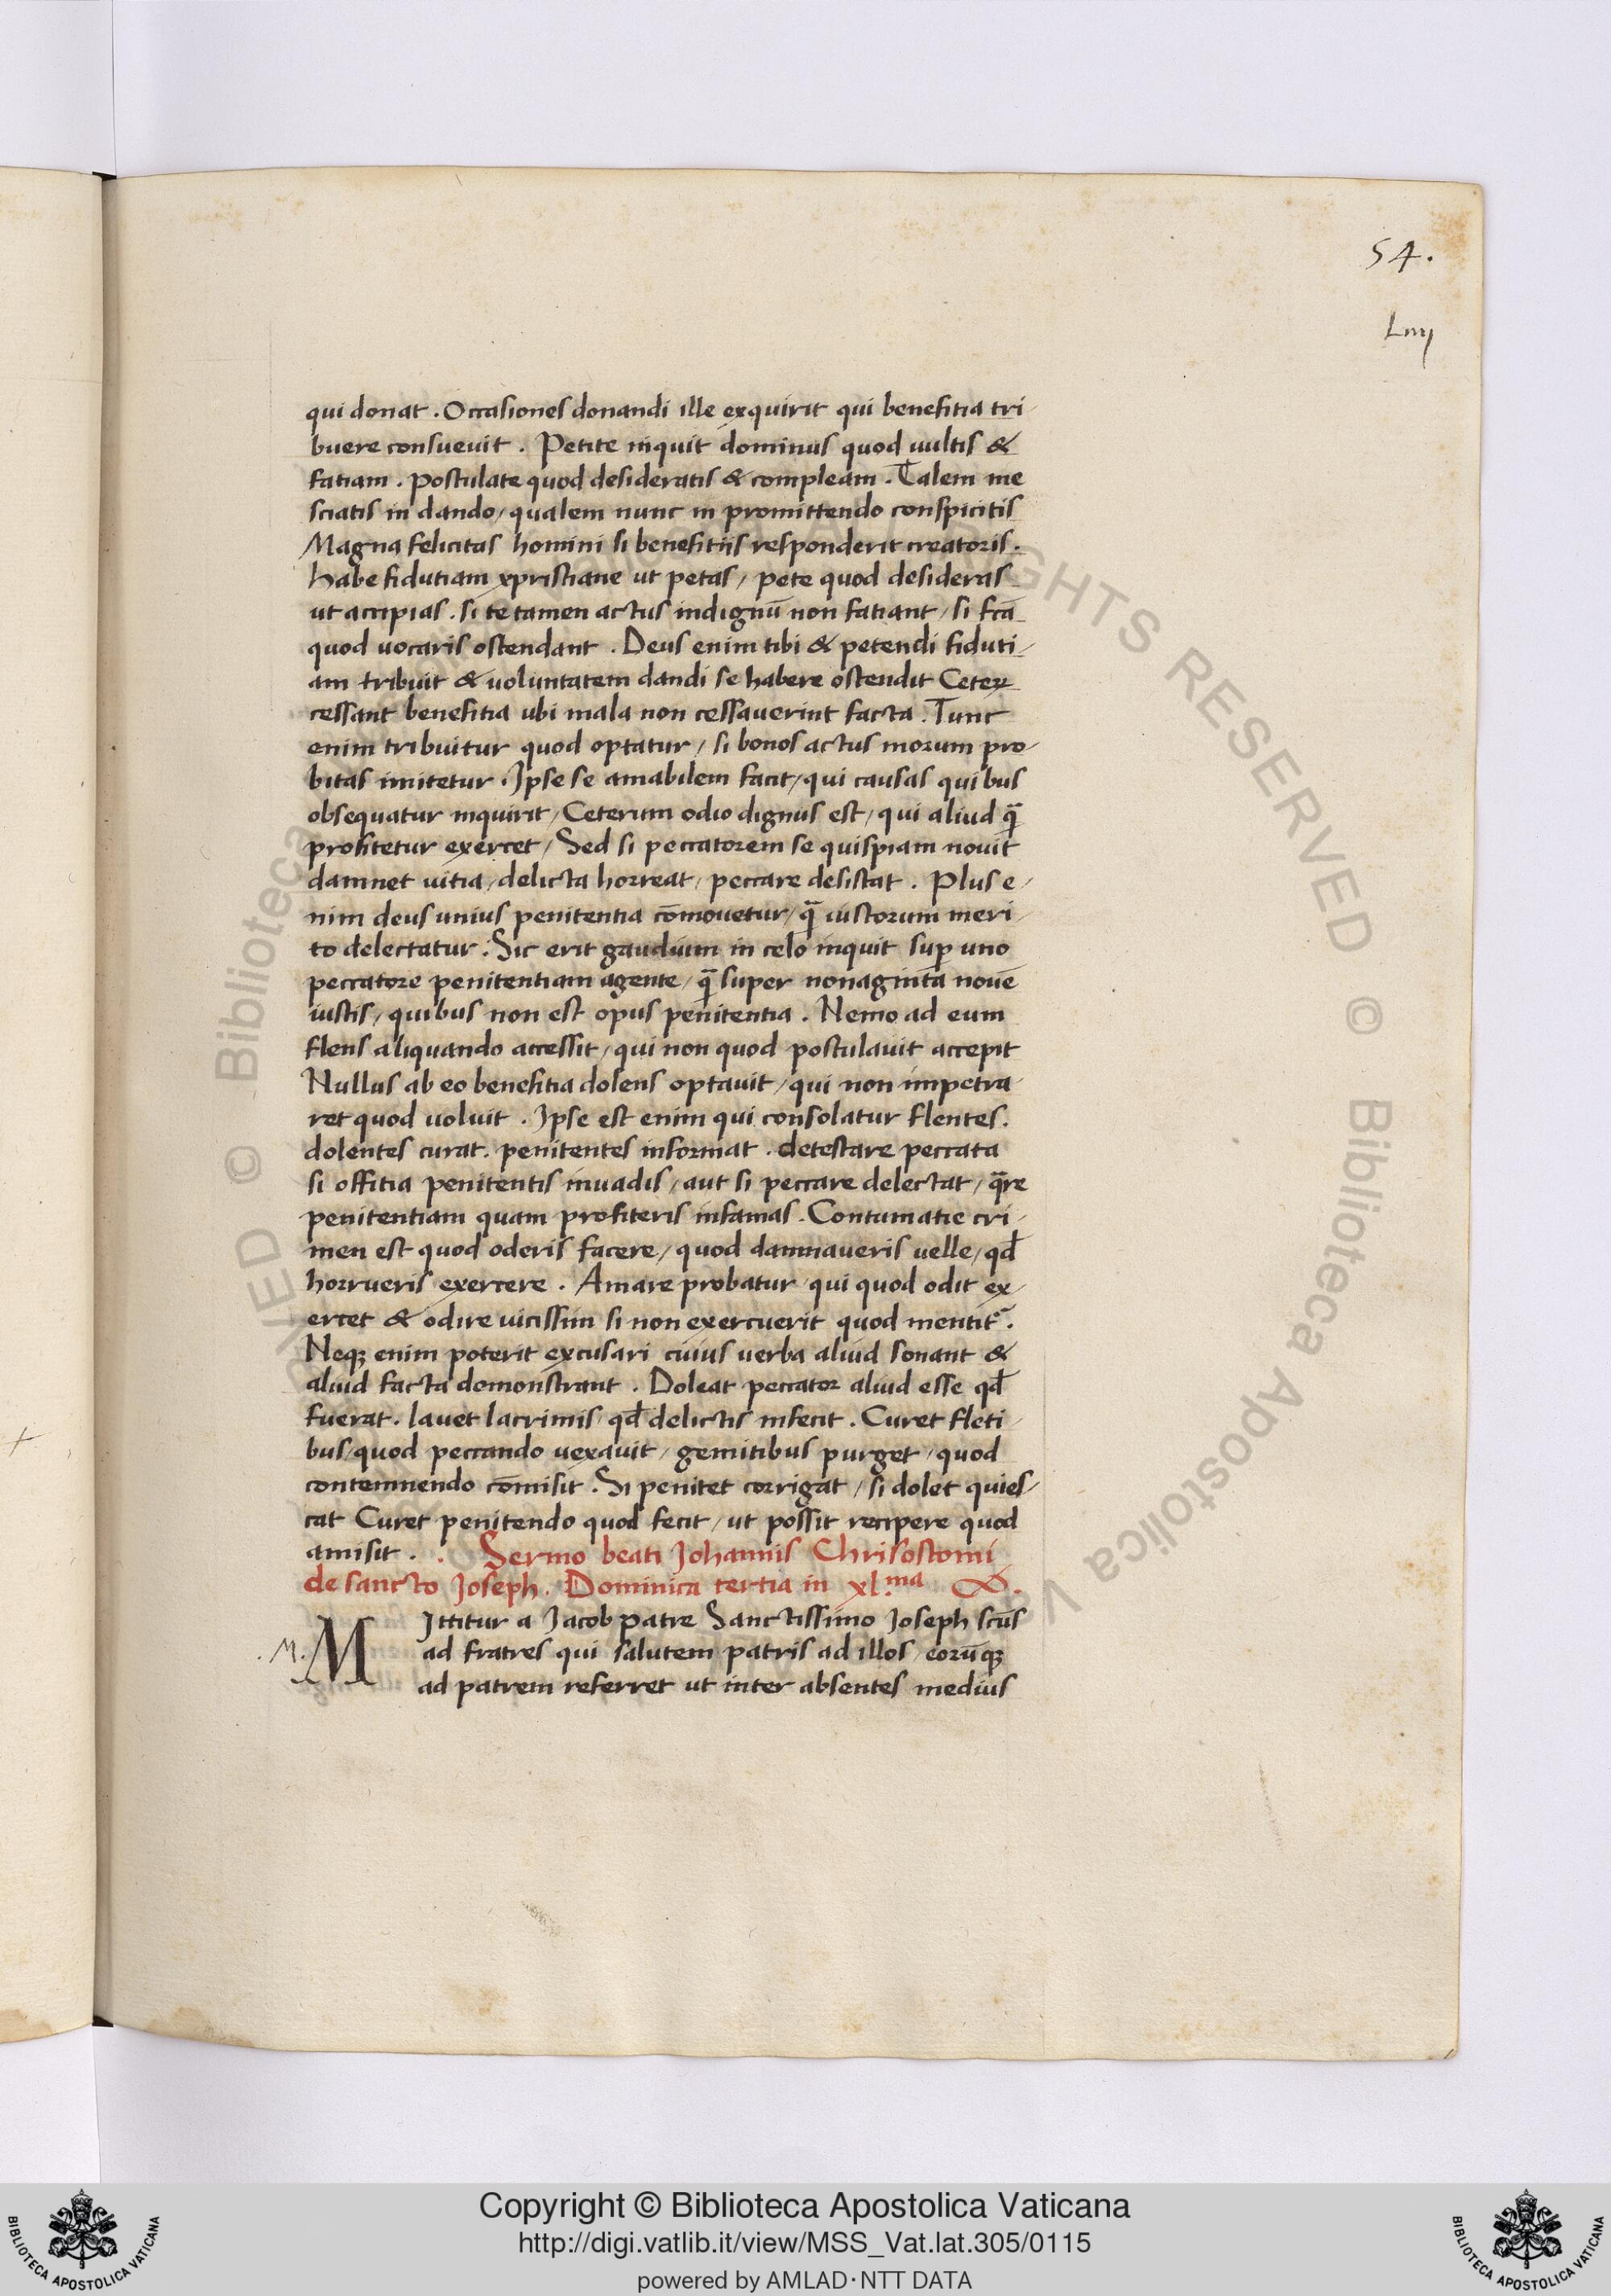 54.
Liiij
qui donat. Occasiones donandi ille exquirit qui benefitia tri-
buere consuevit. Petite inquit dominus quod uultis &
fatiam. postulate quod desideratis & compleam. Talem me
sciatis in dando, qualem nunc in promittendo conspicitis
Magna felicitas homini si benefitiis responderit creatoris.
habe fidutiam xpristiane ut petas, pete quod desideras
ut accipias. si te tamen actus indignū non fatiant, si fcā
quod uocaris ostendant. Deus enim tibi & petendi fiduti-
am tribuit & uoluntatem dandi se habere ostendit Ceteꝝ
cessant benefitia ubi mala non cessauerint facta. Tunc
enim tribuitur quod optatur, si bonos actus morum pro-
bitas imitetur. Ipse se amabilem facit, qui causas quibus
obsequatur inquirit, Ceterum odio dignus est, qui aliud q̄
profitetur exercet, Sed si peccatorem se quispiam nouit
damnet uitia, delicta horreat, peccare desistat. Plus e-
nim deus unius penitentia cōmouetur, q̄ iustorum meri-
to delectatur. Sic erit gaudium in celo inquit suꝑ uno
peccatore penitentiam agente, q̄ super nonaginta nouē
iustis, quibus non est opus penitentia. Nemo ad eum
flens aliquando accessit, qui non quod postulauit accepit
Nullus ab eo benefitia dolens optauit, qui non impetra-
ret quod uoluit. Ipse est enim qui consolatur flentes.
dolentes curat. penitentes informat. detestare peccata
si offitia penitentis inuadis, aut si peccare delectat, q̄re
penitentiam quam profiteris infamas. Contumatie cri-
men est quod oderis facere, quod damnaueris uelle, qd̄
horrueris exercere. Amare probatur qui quod odit ex-
ercet & odire uicissim si non exercuerit quod mentit᷑.
Neqꝫ enim poterit excusari cuius uerba aliud sonant &
aliud facta demonstrant. Doleat peccator aliud esse qd̄
fuerat. lauet lacrimis qd̄ delictis infecit. Curet fleti-
bus, quod peccando uexauit, gemitibus purget, quod
contemnendo cōmisit. Si penitet corrigat, si dolet quies-
cat Curet penitendo quod fecit, ut possit recipere quod
amisit. . Sermo beati Johannis Chrisostomi
de sancto Joseph. Dominica tertia in xl.ma
.M. M Ittitur a Jacob patre Sanctissimo Joseph scūs
ad fratres qui salutem patris ad illos, eorūqꝫ
ad patrem referret ut inter absentes medius
© Biblioteca Apostolica Vaticana
RIGHTS RESERVED
Copyright © Biblioteca Apostolica Vaticana
http://digi.vatlib.it/view/MSS_Vat.lat.305/0115
powered by AMLAD·NTT DATA
BIBLIOTECA APOSTOLICA VATICANA
BIBLIOTECA APOSTOLICA VATICANA